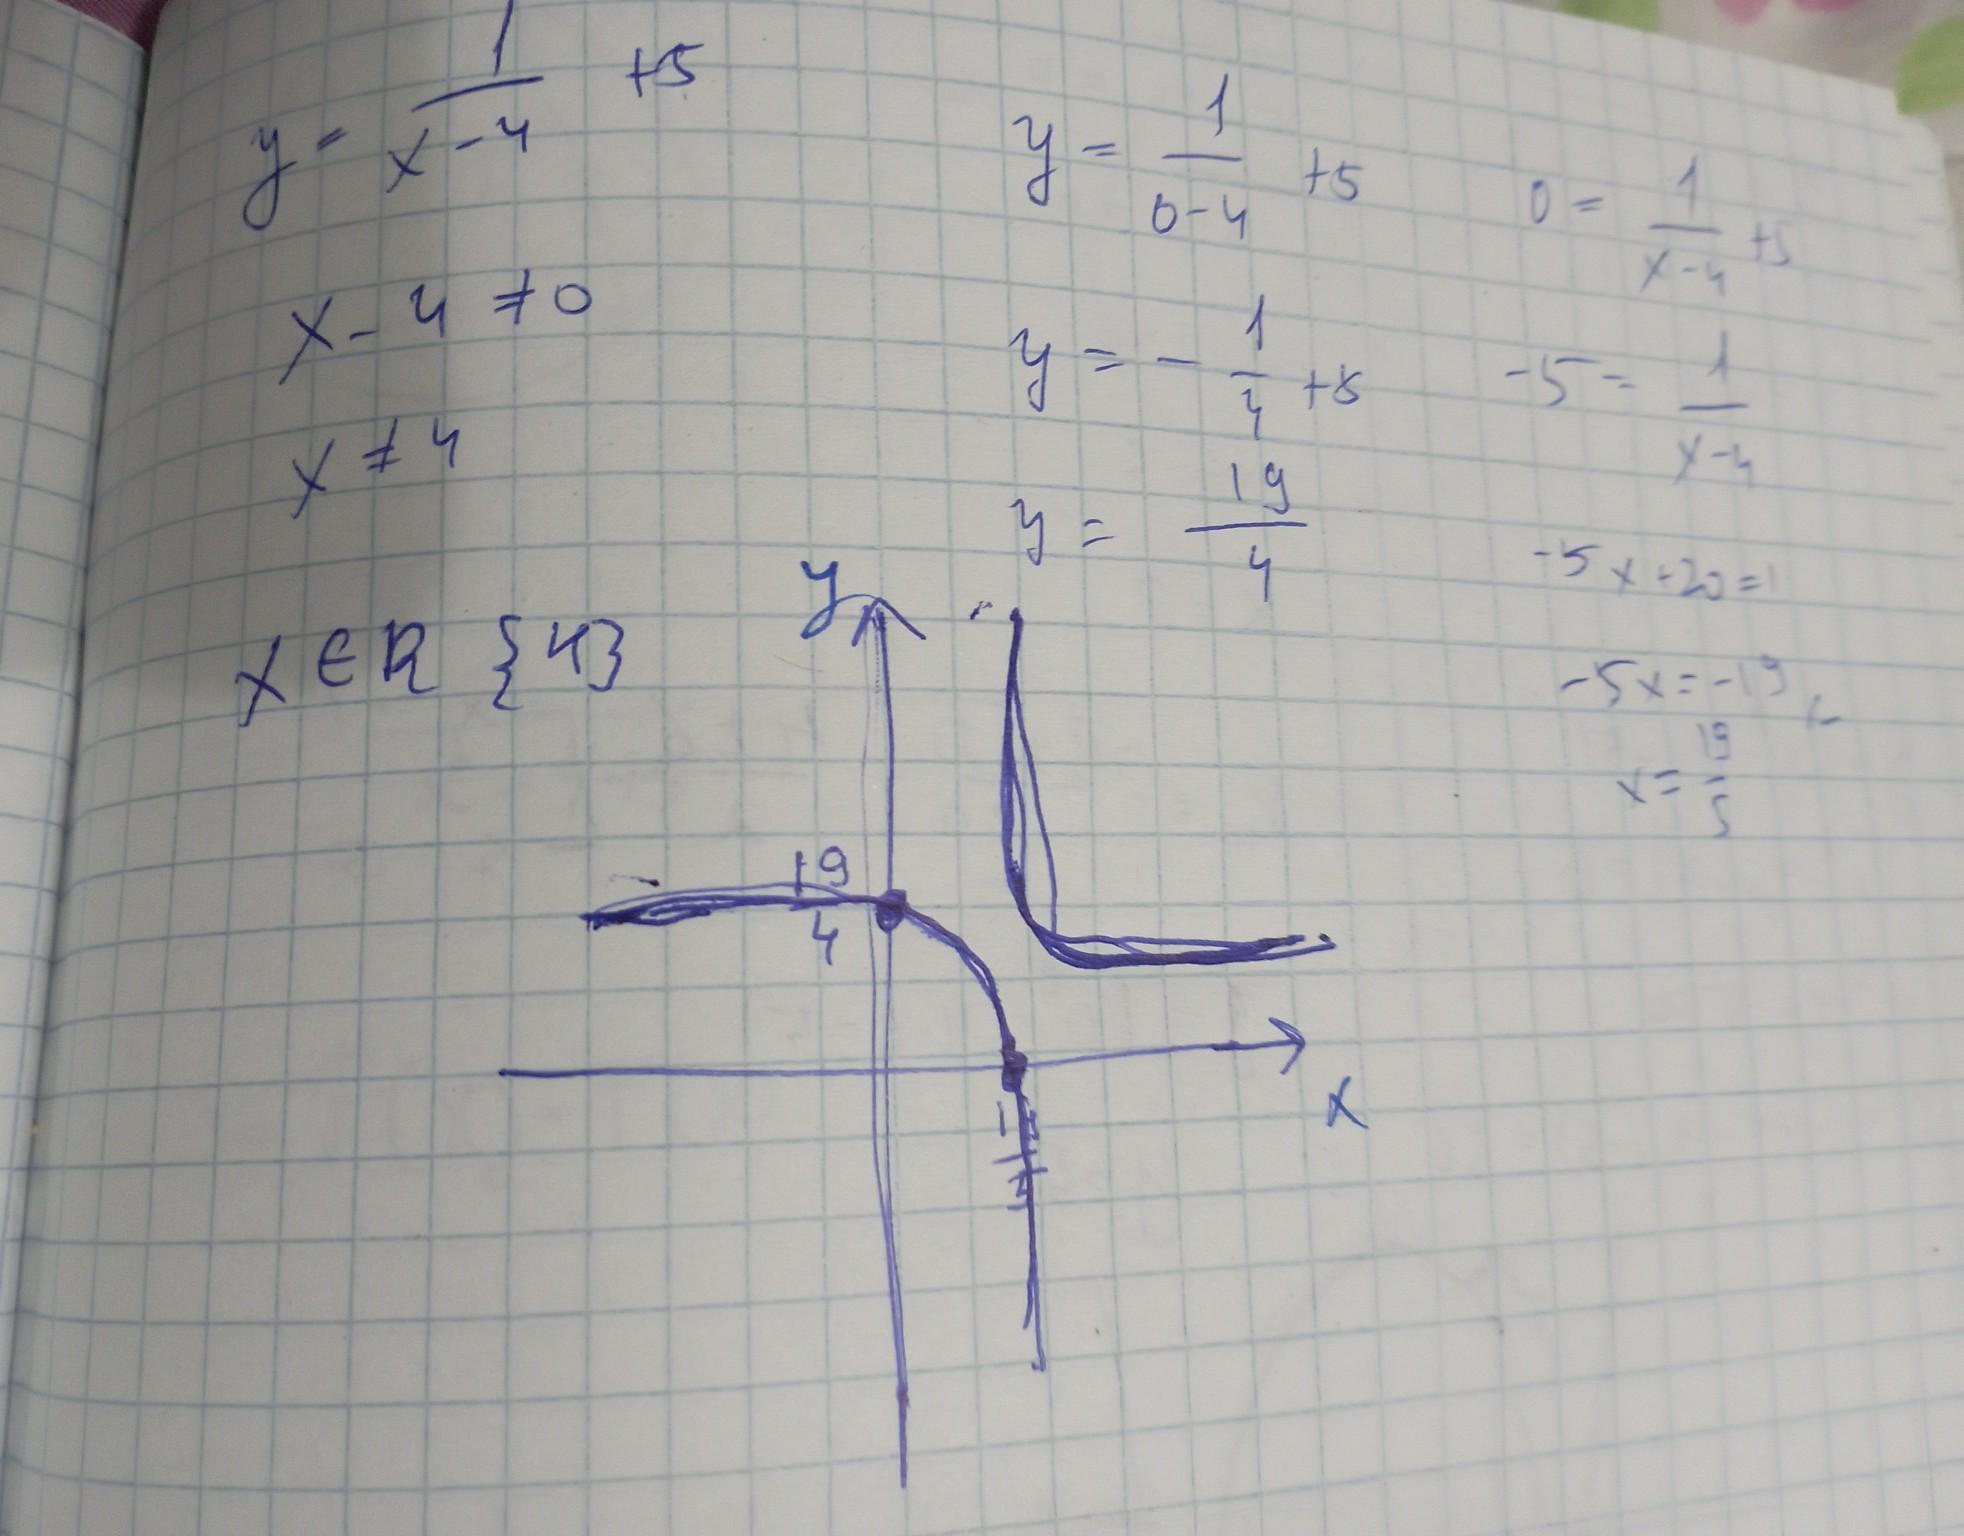 y = 1/(x-4) +5
x - 4 ≠ 0
x ≠ 4
x ∈ R {4}
y = 1/(0-4) +5
y = - 1/4 +5
y = 19/4
0 = 1/(x-4) +5
-5 = 1/(x-4)
-5x+20=1
-5x=-19
x= 19/5
y
19/4
x